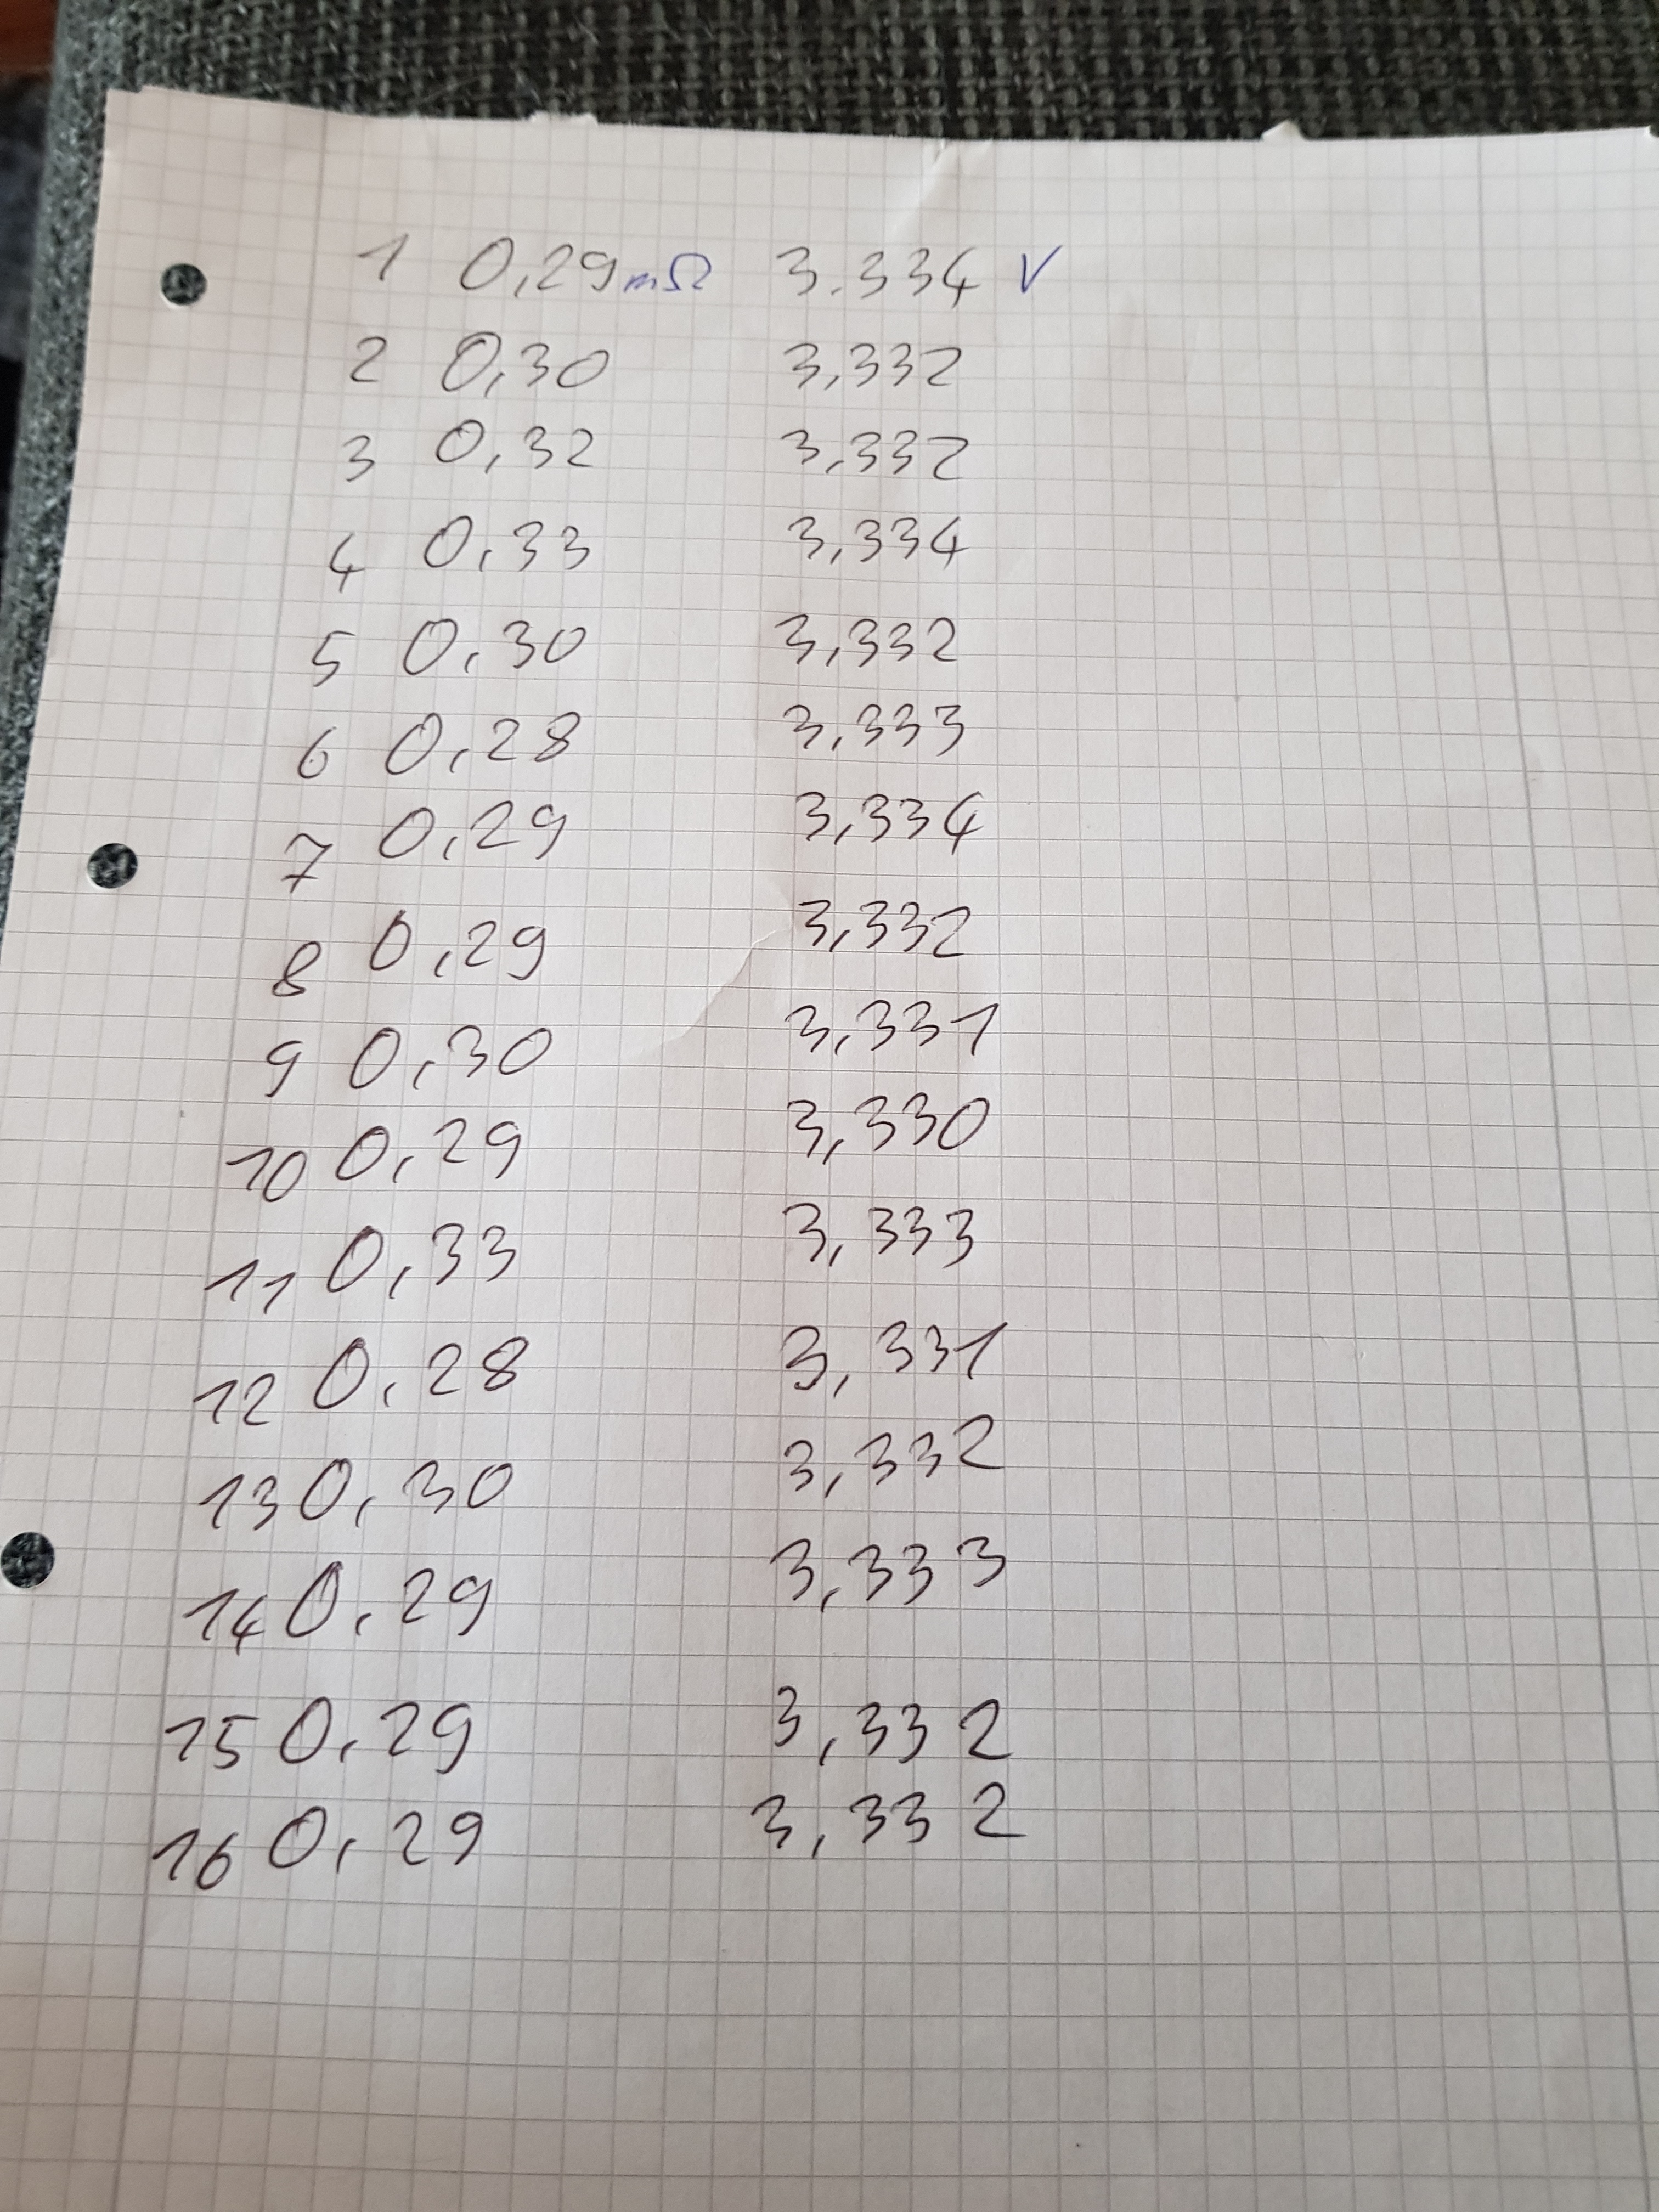 1 0,29 mΩ 3.334 V
2 0,30 3,332
3 0,32 3,332
4 0,33 3,334
5 0,30 3,332
6 0,28 3,333
7 0,29 3,334
8 0,29 3,332
9 0,30 3,331
10 0,29 3,330
11 0,33 3,333
12 0,28 3,331
13 0,30 3,332
14 0,29 3,333
15 0,29 3,332
16 0,29 3,332